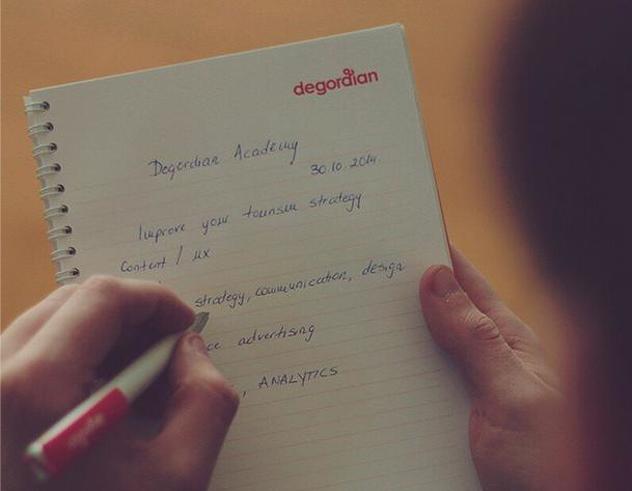 degordian
Degordian Academy
30.10.2014.
Improve your tourism strategy
Content / UX
strategy, communication, design
advertising
, ANALYTICS